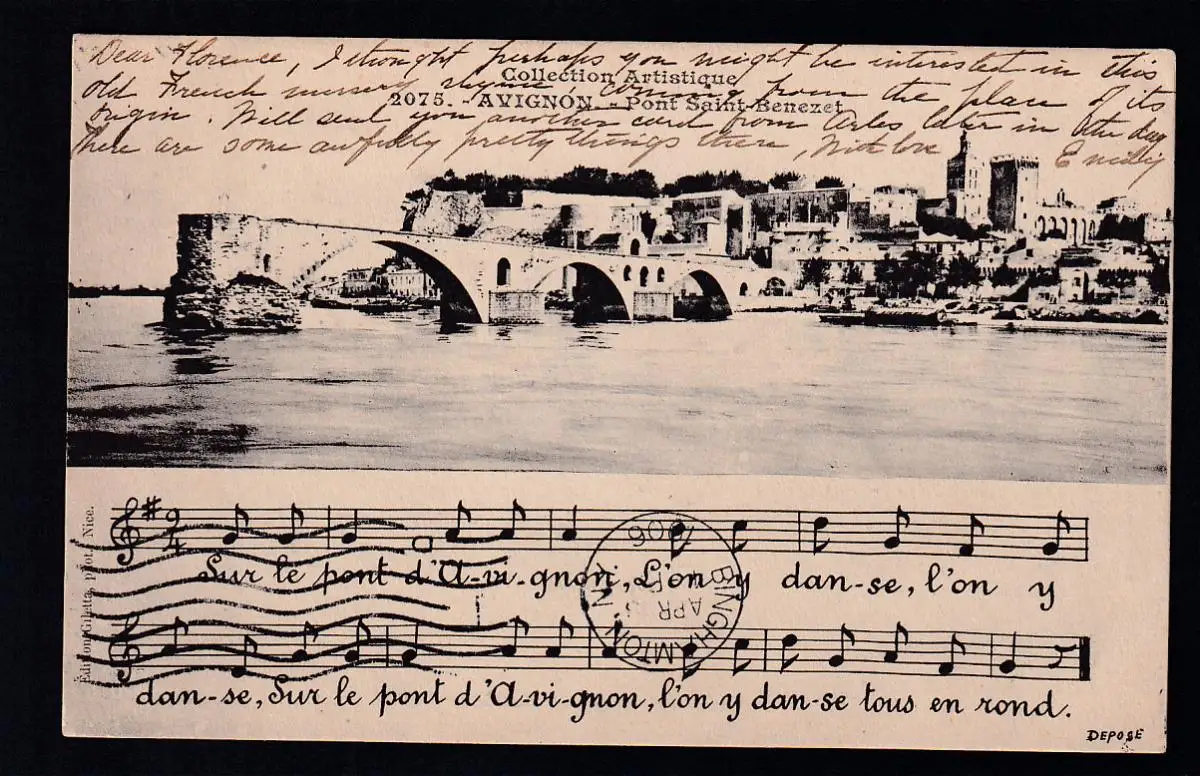 Dear Florence, I thought perhaps you might be interested in this
Collection Artistique
old French nursery rhyme, coming from the place of its
2075. - AVIGNON. - Pont Saint-Benezet
origin. Will send you another card from Arles later in the day
There are some awfully pretty things there, With love Emily
Édition Giletta, phot., Nice.
Sur le pont d'A-vi-gnon, L'on y dan-se, l'on y
1906
BINGHAMTON
APR
N.Y.
dan-se, Sur le pont d'A-vi-gnon, l'on y dan-se tous en rond.
DEPOSE